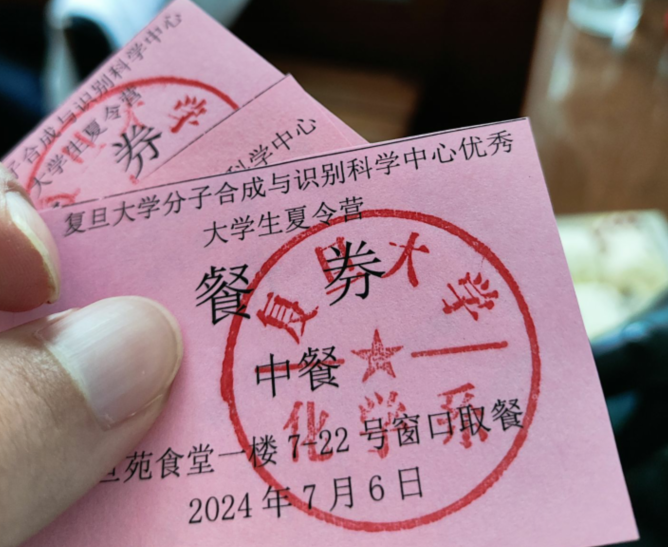 子合成与识别科学中心
大学生夏令营
券
学
科学中心
复旦大学分子合成与识别科学中心优秀
大学生夏令营
餐 券
复旦大学
中餐
化学系
旦苑食堂一楼 7-22 号窗口取餐
2024 年 7 月 6 日